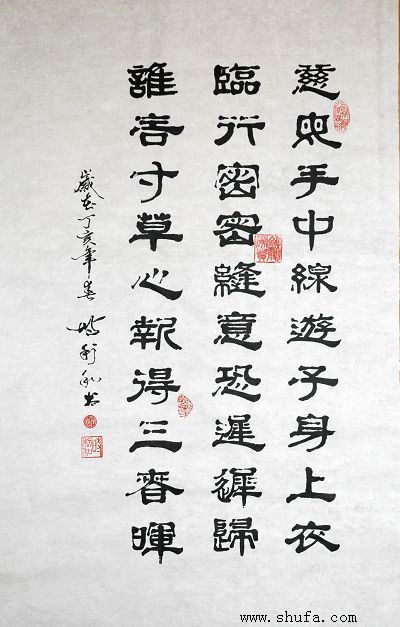 慈母手中線遊子身上衣
臨行密密縫意恐遲遲歸
誰言寸草心報得三春暉
歲在丁亥年春
www.shufa.com